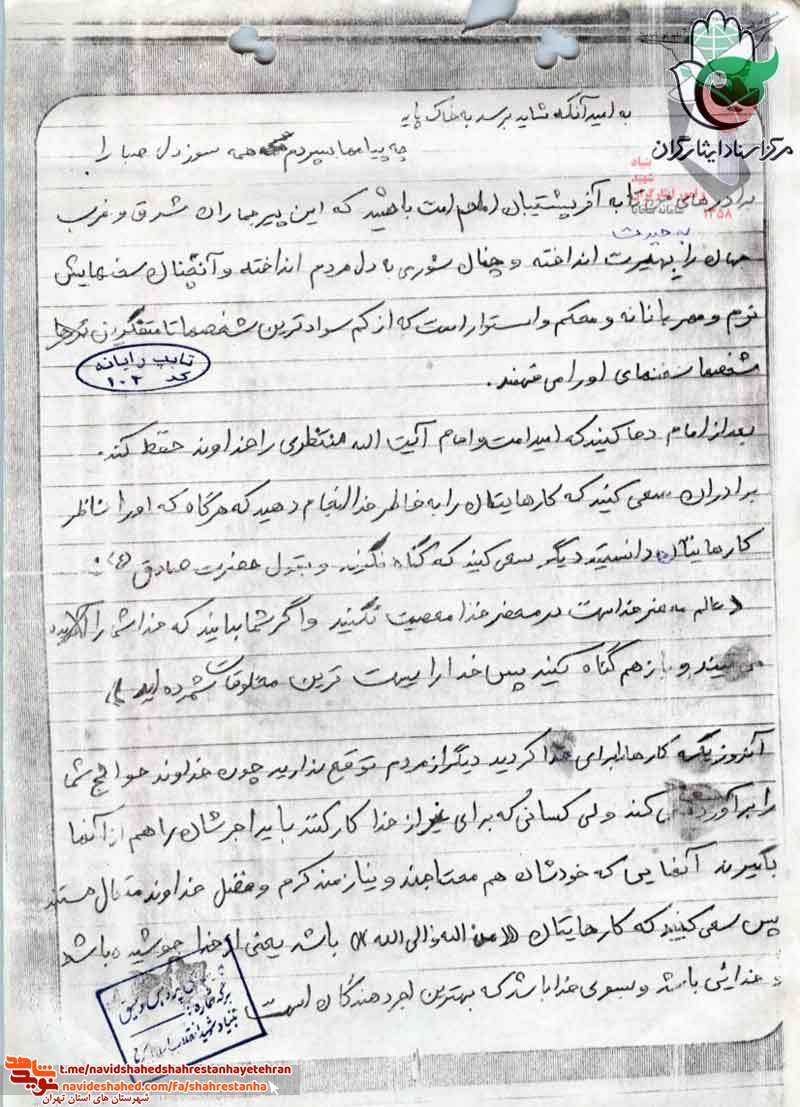 به امید آنکه شاید برسد به خاک پایه
چه پیامها سپردم همه سوز دل صبا را
مرکز اسناد ایثارگران
بنیاد
شهید
و امور ایثارگران
۱۳۵۸
برادرهای من تا به آخر پشتیبان امام امت باشید که این پیر جماران شرق و غرب
به حیرت
جهان را بهیرت انداخته و چنان شوری به دل مردم انداخته و آنچنان سخنهایش
نرم و مهربانانه و محکم و استوار است که از کم سوادترین شخصها تا متفکرین ترها
تایپ رایانه
کد ۱۰۲
شخصها سخنهای او را می فهمند.
بعد از امام دعا کنید که امید امت و امام آیت اله منتظری را خداوند حفظ کند.
برادران سعی کنید که کارهایتان را به خاطر خدا انجام دهید که هرگاه که او را ناظر
کارهایتان دانستید دیگر سعی کنید که گناه نکنید و بقول حضرت صادق (ع):
عالم محضر خداست در محضر خدا معصیت نکنید و اگر شما بدانید که خدا شما را
می بیند و باز هم گناه کنید پس خدا را پست ترین مخلوقات شمرده اید»
آنروزیکه کارها برای خدا کردید دیگر از مردم توقع ندارید چون خداوند حوائج شما
را برآورده می کند ولی کسانی که برای غیر از خدا کار کنند باید اجرشان را هم از آنها
بگیرند آنهایی که خودشان هم محتاجند و نیازمند کرم و فضل خداوند متعال هستند
پس سعی کنید که کارهایتان «من الله و الی الله» باشد یعنی از خدا جوشیده باشد
خدائی باشد و بسوی خدا باشد که بهترین اجر دهندگان است
برگه شماره:
بنیاد شهید انقلاب اسلامی کرج
نوید شاهد
t.me/navidshahedshahrestanhayetehran
navideshahed.com/fa/shahrestanha
شهرستان های استان تهران